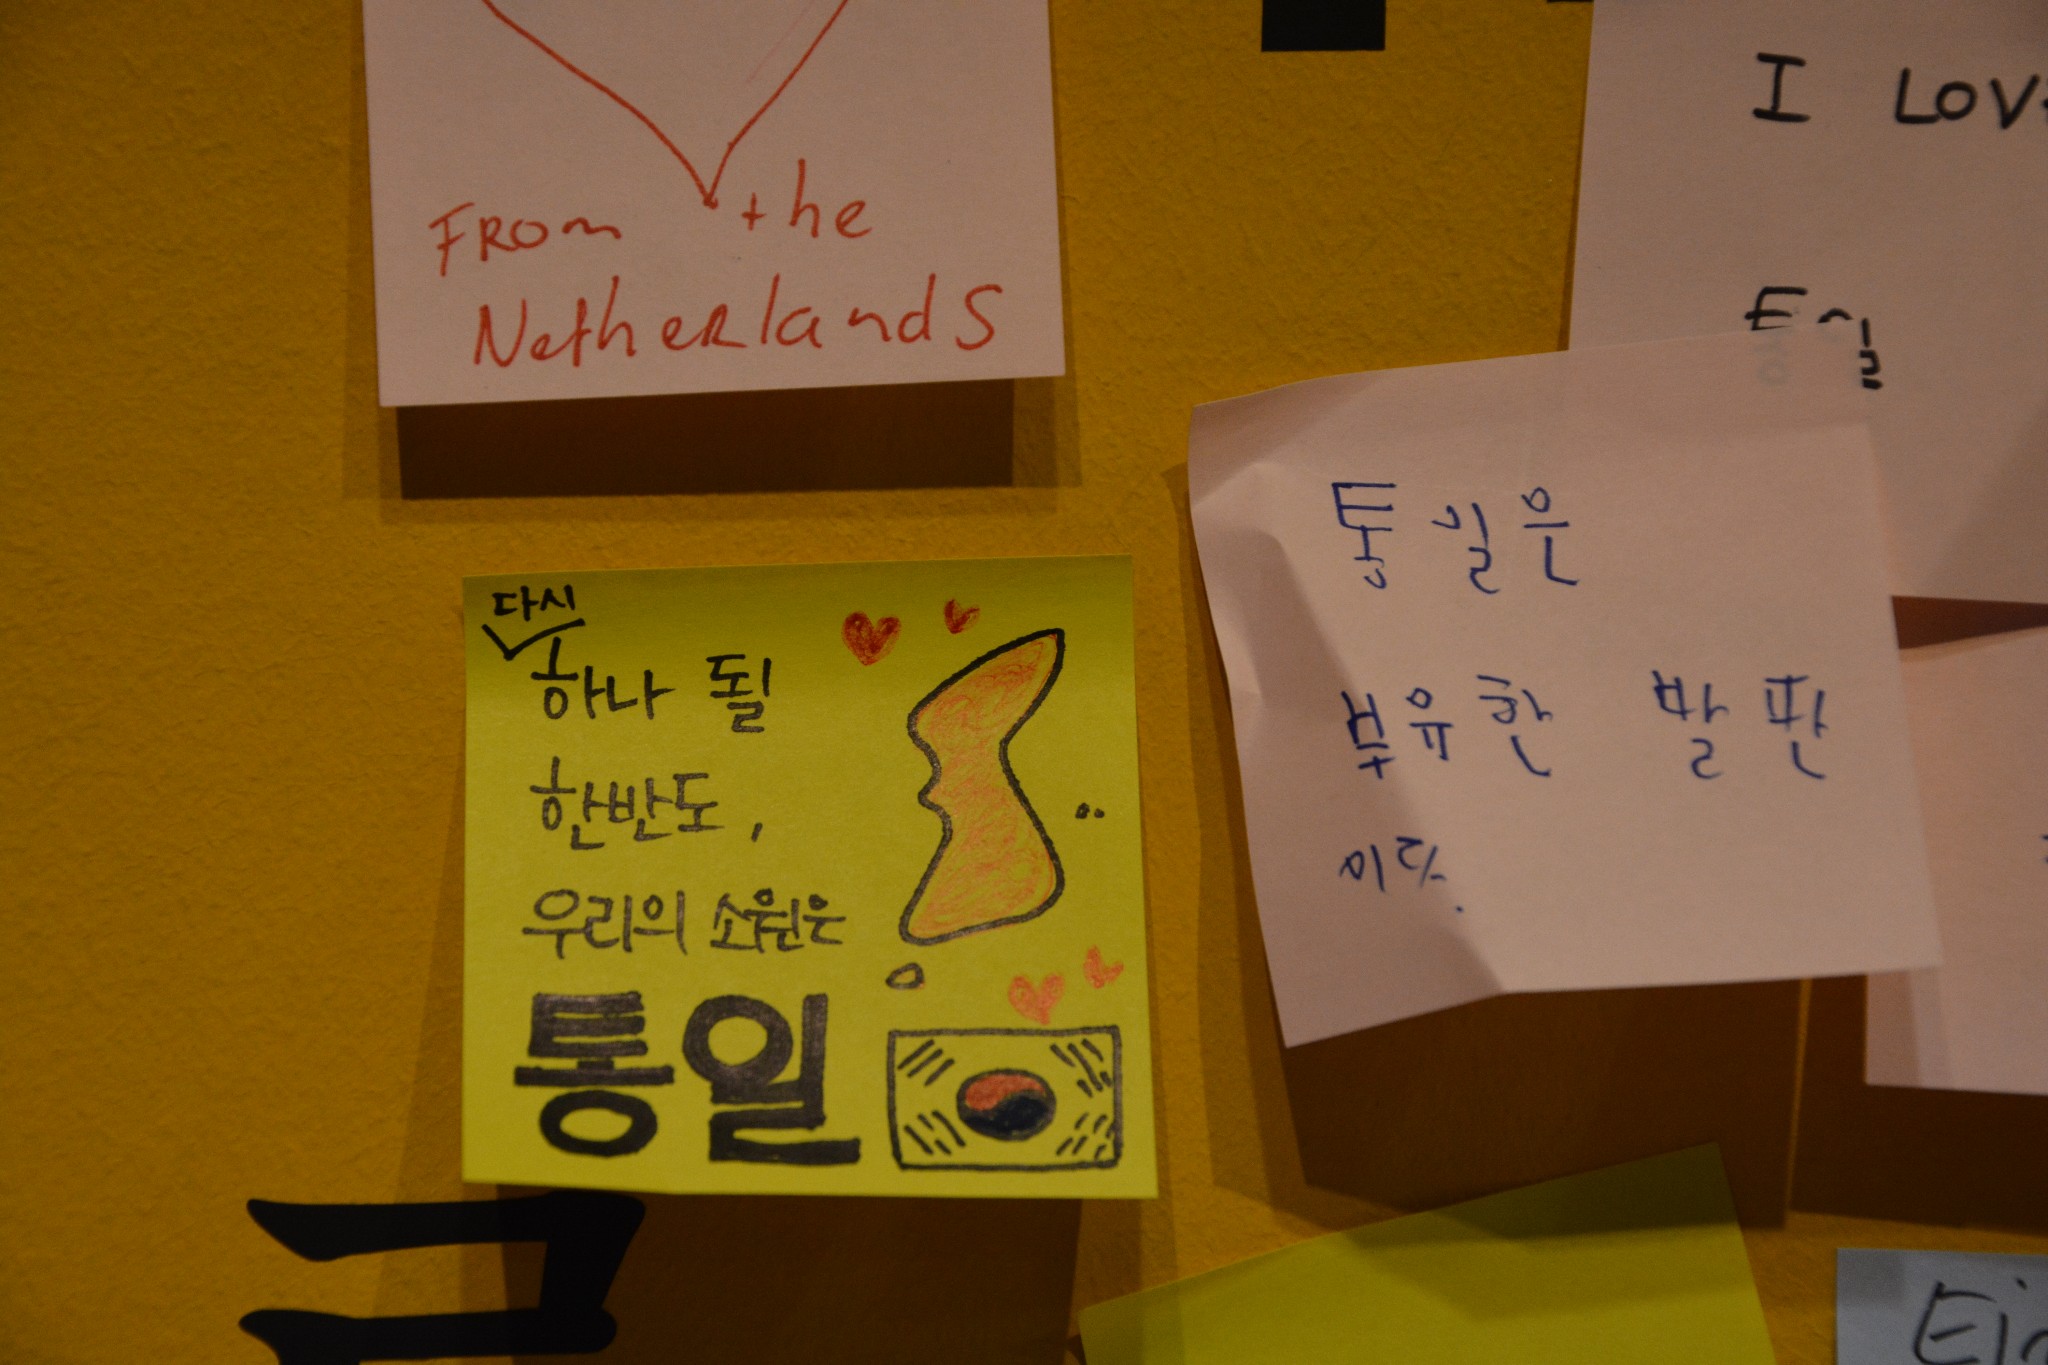 From the
Netherlands
I LOVE
통일
다시
하나 될
한반도,
우리의 소원은
통일
통일은
부유한 발판
이다.